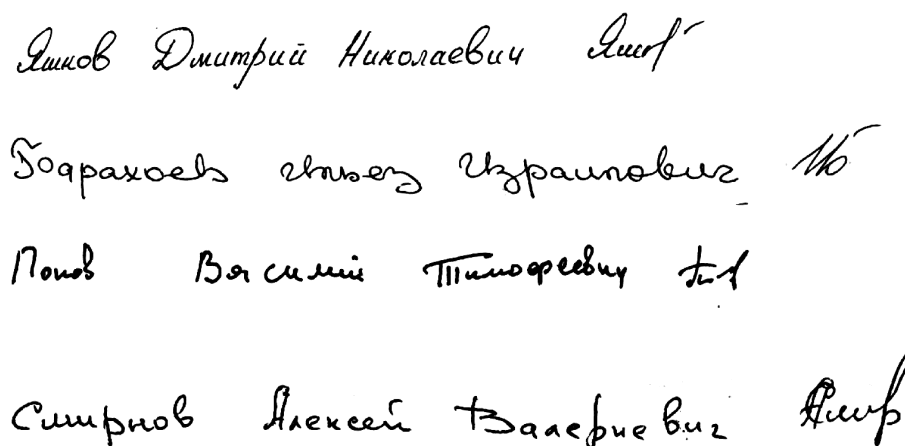 Яшнов Дмитрий Николаевич
Бадрахоев Ильез Израилович
Попов Василий Тимофеевич
Смирнов Алексей Валериевич